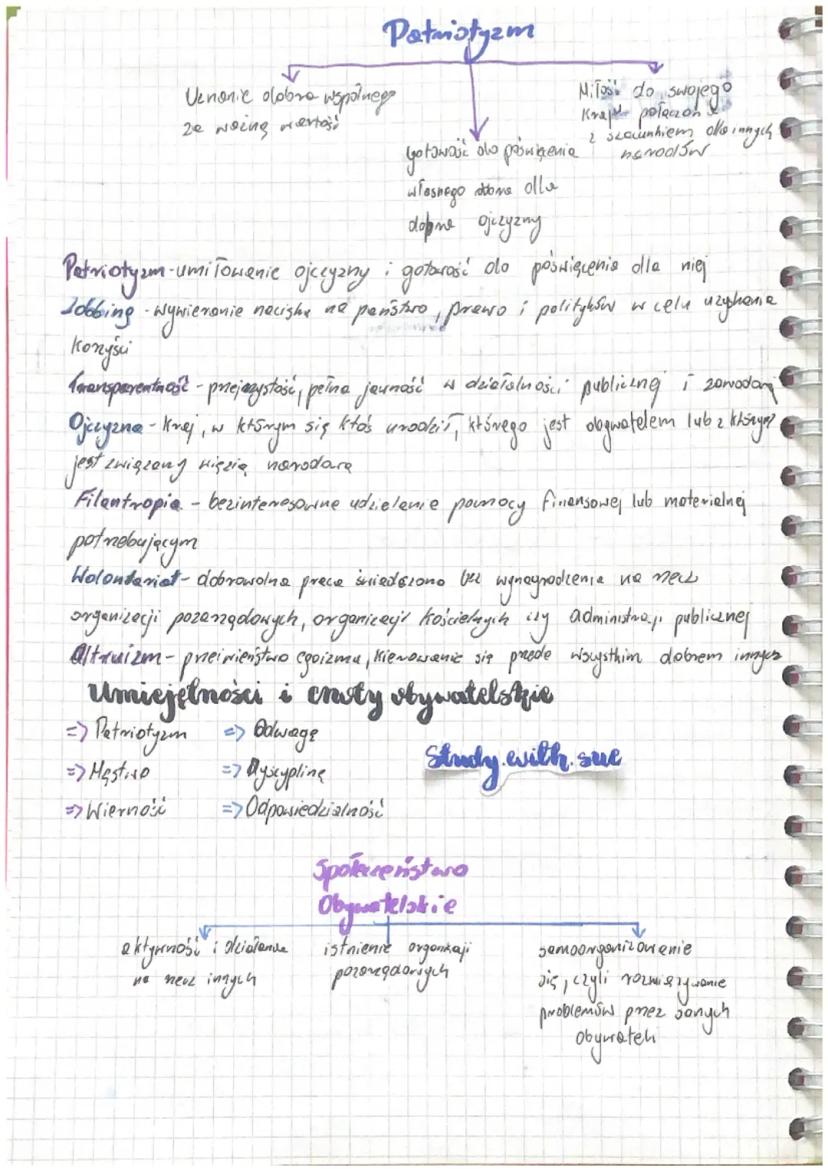 Patriotyzm
Uznanie dobra wspólnego
za ważną wartość
gotowość do poświęcenia
własnego dobra dla
dobra ojczyzny
Miłość do swojego
kraju połączona
z szacunkiem dla innych
narodów
Patriotyzm - umiłowanie ojczyzny i gotowość do poświęcenia dla niej
Lobbing - wywieranie nacisku na państwo, prawo i polityków w celu uzyskania
korzyści
Transparentność - przejrzystość, pełna jawność w działalności publicznej i zawodowej
Ojczyzna - kraj, w którym się ktoś urodził, którego jest obywatelem lub z którym
jest związany więzią narodową
Filantropia - bezinteresowne udzielanie pomocy finansowej lub materialnej
potrzebującym
Wolontariat - dobrowolna praca świadczona bez wynagrodzenia na rzecz
organizacji pozarządowych, organizacji kościelnych czy administracji publicznej
Altruizm - przeciwieństwo egoizmu, kierowanie się przede wszystkim dobrem innych
Umiejętności i cnoty obywatelskie
=> Patriotyzm => Odwagę
=> Męstwo => Dyscyplinę
=> Wierność => Odpowiedzialność
Study.with.sue
Społeczeństwo
Obywatelskie
aktywność i działania
na rzecz innych
istnienie organizacji
pozarządowych
samoorganizowanie
się, czyli rozwiązywanie
problemów przez samych
obywateli